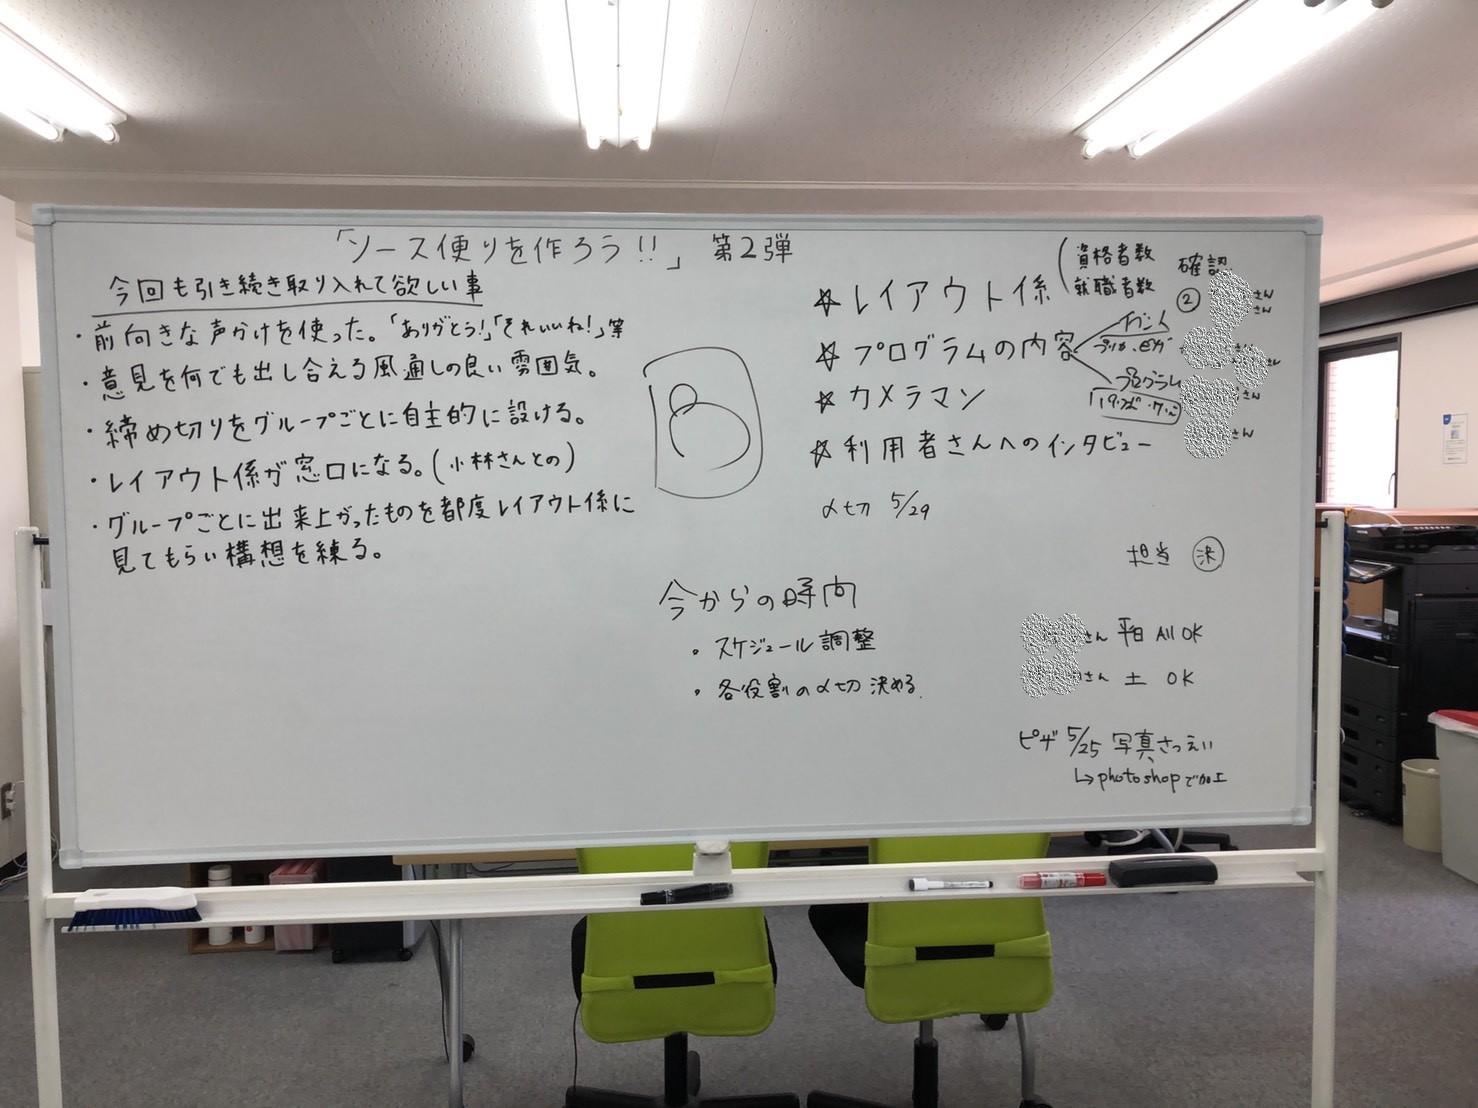 「ソース便りを作ろう!!」 第2弾
今回も引き続き取り入れて欲しい事
・前向きな声かけを使った。「ありがとう!」「それいいね!」等
・意見を何でも出し合える風通しの良い雰囲気。
・締め切りをグループごとに自主的に設ける。
・レイアウト係が窓口になる。(小林さんとの)
・グループごとに出来上がったものを都度レイアウト係に
見てもらい構想を練る。
☆レイアウト係
資格者数
就職者数
確認
②
さん
さん
☆プログラムの内容
イベント
プログラム
☆カメラマン
さん
☆利用者さんへのインタビュー
さん
〆切 5/29
担当 決
今からの時間
・スケジュール調整
・各役割の〆切決める.
さん 平日 All OK
さん 土 OK
ピザ 5/25 写真さつえい
↳photoshopで加工